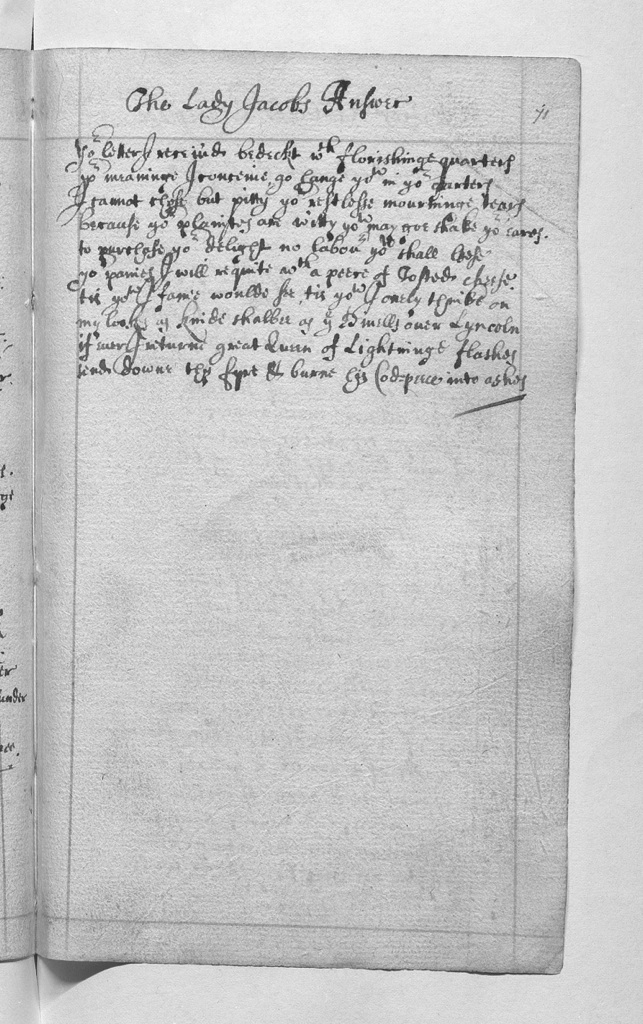 The Lady Jacobs Answer
71
Yor letter I receivde bedeckt wth florishinge quarters
yor meaninge I conceive go hange yow in yor garters
I cannot chose but pitty yor restlesse mourninge tears
because yor plaintes are witty yow may goe shake yor eares.
to purchase yor delight no labour yow shall leese
yor paines I will requite wth a peece of Tosted cheese.
tis yow I faine woulde see tis yow I onely thinke on
my lookes as kinde shalbee as ye Divells over Lyncoln
if ever I returne great Queen of Lightninge flashes
send downe thy fyre & burne his Cod-peece into ashes